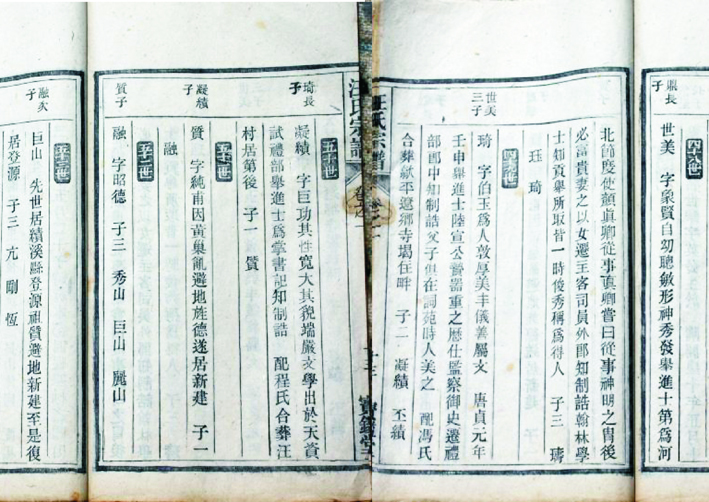 鼎長子
四十八世
世美 字象賢自幼聰敏形神秀發舉進士第爲河
北節度使顏眞卿從事眞卿嘗曰從事神明之冑後
必富貴妻之以女遷主客司員外郎知制誥翰林學
士知貢舉所取皆一時俊秀稱爲得人 子三 璹
珏 琦
四十九世
世美三子
琦 字伯玉爲人敦厚美丰儀善屬文 唐貞元年
壬申舉進士陸宣公贄器重之歷仕監察御史遷禮
部郎中知制誥父子俱在詞苑時人美之 配馮氏
合葬歙平遼鄉寺塢任畔 子二 凝績 丕績
汪氏宗譜 卷之一 寶鑑堂
五十世
琦長子
凝績 字巨功其性寬大其貌端嚴文學出於天資
試禮部舉進士爲掌書記知制誥 配程氏合葬汪
村居第後 子一 質
五十一世
凝績子
質 字純甫因黃巢亂避地旌德遂居新建 子一
融
五十二世
質子
融 字昭德 子三 秀山 巨山 麗山
五十三世
融次子
巨山 先世居績溪縣登源祖質避地新建至是復
居登源 子三 亢 剛 恆